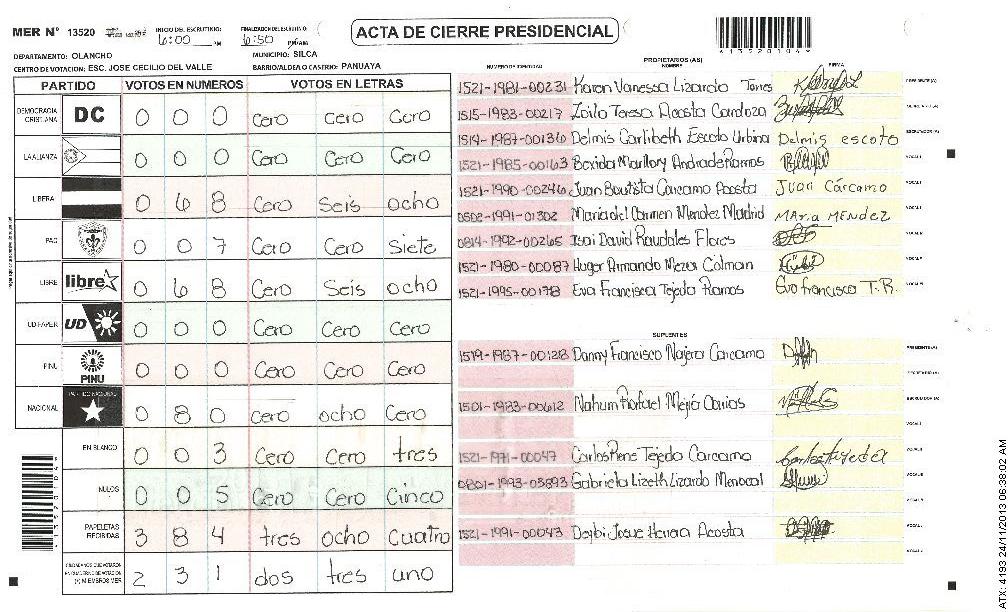 MER Nº 13520
INICIO DEL ESCRUTINIO: 6:00 PM
FINALIZACION DEL ESCRUTINIO: 6:50 PM
ACTA DE CIERRE PRESIDENCIAL
DEPARTAMENTO: OLANCHO MUNICIPIO: SILCA
CENTRO DE VOTACION: ESC. JOSE CECILIO DEL VALLE BARRIO/ALDEA O CASTRIO: PANUAYA
PARTIDO VOTOS EN NUMEROS VOTOS EN LETRAS
DEMOCRACIA CRISTIANA DC 0 0 0 Cero Cero Cero
LA ALIANZA 0 0 0 Cero Cero Cero
LIBERAL 0 6 8 Cero Seis ocho
PAC 0 0 7 Cero Cero Siete
LIBRE libre 0 6 8 Cero Seis ocho
UD-FAPER UD 0 0 0 Cero Cero Cero
PINU PINU 0 0 0 Cero Cero Cero
NACIONAL PARTIDO NACIONAL 0 8 0 cero ocho Cero
EN BLANCO 0 0 3 Cero Cero tres
NULOS 0 0 5 Cero Cero Cinco
PAPELETAS RECIBIDAS 3 8 4 tres ocho Cuatro
CIUDADANOS QUE VOTARON EN CUADERNO DE VOTACION (Y) MIEMBROS MER 2 3 1 dos tres uno
PROPIETARIOS (AS)
NUMERO DE IDENTIDAD NOMBRE FIRMA
1521-1981-00231 Karen Vanessa Lizardo Torres PRESIDENTE(A)
1515-1983-00217 Zoila Teresa Acosta Cardoza
1519-1987-00136 Delmis Garibeth Escoto Urbina Delmis escoto ESCRUTADOR (A)
1521-1985-00163 Marllory Andrade Ramos VOCAL I
1521-1990-00246 Juan Bautista Carcamo Acosta Juan Cárcamo
0502-1991-01302 Maria del Carmen Mendez Madrid Maria MENdez
0814-1992-00265 Isai David Raudales Flores
1521-1980-00087 Huger Armando Meza Colman
1521-1995-00178 Eva Francisca Tejeda Ramos Eva francisca T.R.
SUPLENTES
1519-1987-00128 Danny Francisco Najera Carcamo PRESIDENTE(A)
SECRETARIO (A)
1501-1983-00612 Nahum Rafael Mejia ESCRUTADOR (A)
1521-1971-00047 Carlos Rene Tejeda Carcamo Carlos tejeda
0801-1993-03893 Gabriela Lizeth Lizardo Menocal
1521-1991-00043 Deybi Josue Herrera Acosta
ATX: 4193 24/11/2013 06:38:02 AM